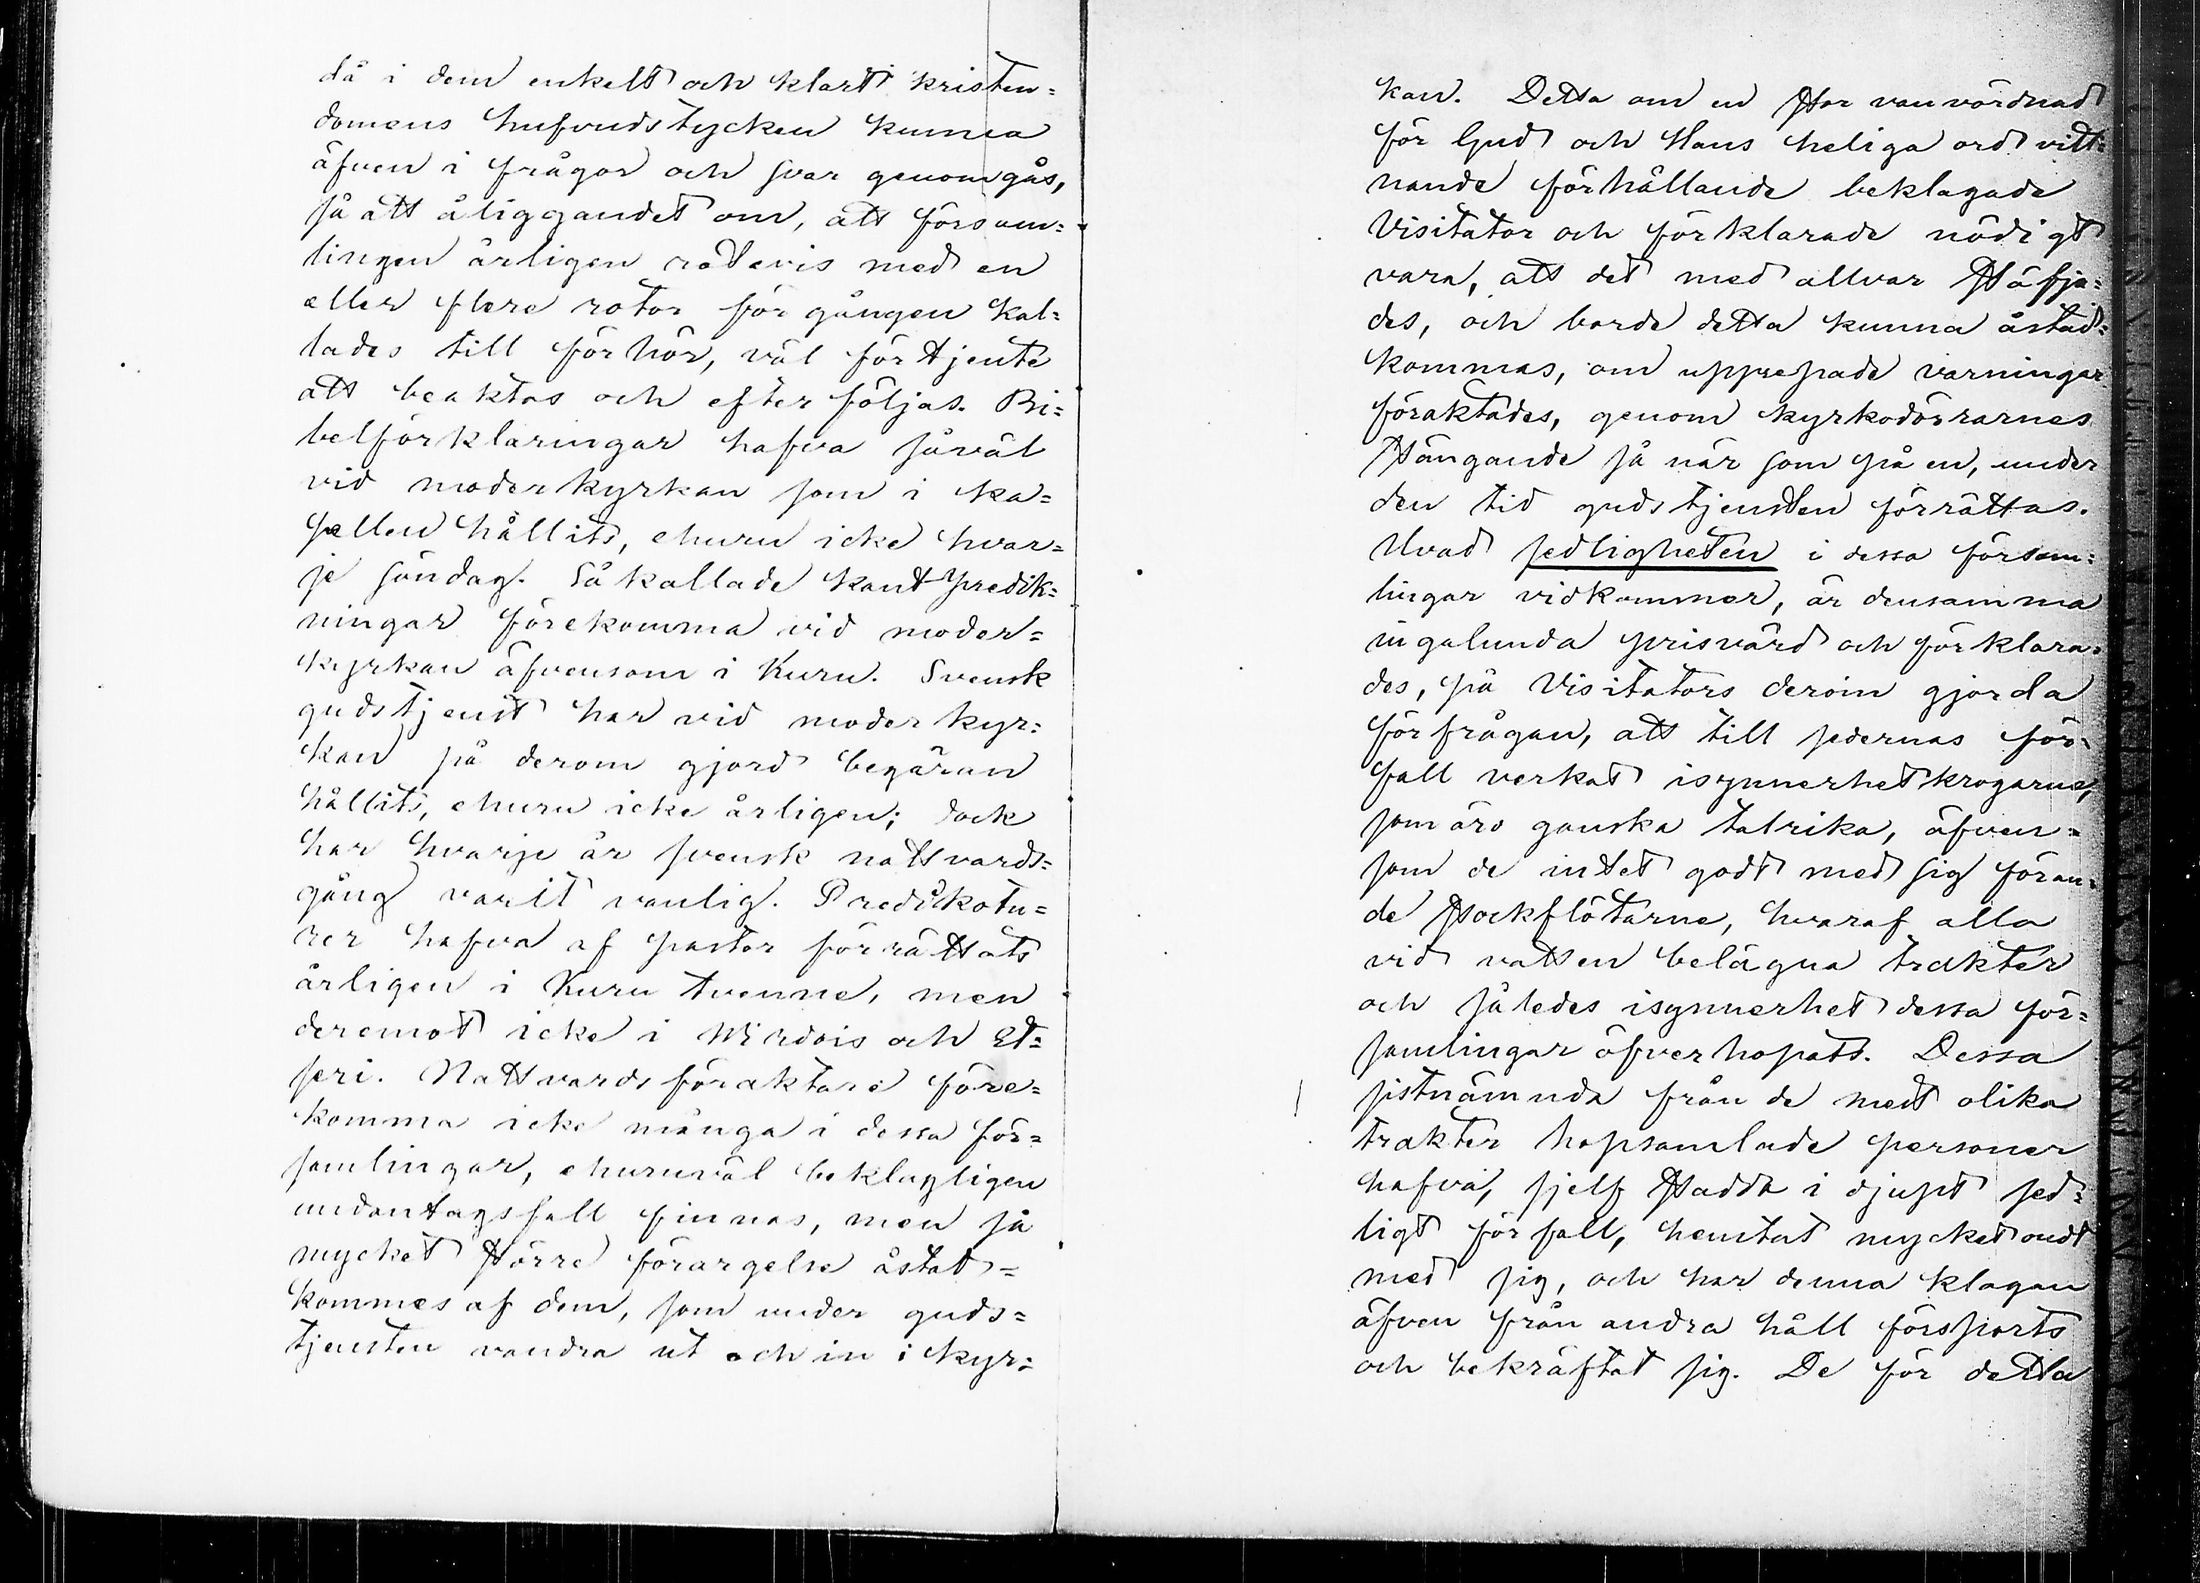 då i dem enkelt och klart kristen=
domens hufvudstycken kunna
äfven i frågor och svar genomgås,
så att åliggandet om, att försam=
lingen årligen rotevis med en
eller flere rotor för gången kal=
lades till förhör, väl förtjente
att beaktas och efterföljas. Bi=
belförklaringar hafva såväl
vid moderkyrkan som i ka=
pellen hållits, ehuru icke hvar=
je söndag. Så kallade kantpredik=
ningar förekomma vid moder=
kyrkan äfvensom i Kuru. Svensk
gudstjenst har vid moderkyr=
kan på derom gjord begäran
hållits, ehuru icke årligen; dock
har hvarje år svensk nattvards=
gång varit vanlig. Predikotu=
rer hafva af pastor förrättats
årligen i Kuru tvenne, men
deremot icke i Wirdois och Et=
seri. Nattvardsföraktare före=
komma icke många i dessa för=
samlingar, ehuruväl beklagligen
undantagsfall finnas, men så
mycket större förargelse åstad=
kommes af dem, som under guds=
tjensten vandra ut och in i kyr=
kan. Detta om en stor vanvördnad
för Gud och Hans heliga ord vitt=
nande förhållande beklagade
Visitator och förklarade nödigt
vara, att det med allvar stäfja=
des, och borde detta kunna åstad=
kommas, om upprepade varningar
föraktades, genom kyrkodörrarnes
stängande så när som på en, under
den tid gudstjensten förrättas.
Hvad sedligheten i dessa försam=
lingar vidkommer, är densamma
ingalunda prisvärd och förklara=
des, på Visitators deröm gjorda
förfrågan, att till sedernas för=
fall verkat isynnerhet krogarne,
som äro ganska talrika, äfven=
som de intet godt med sig föran=
de stockflötarne, hvaraf alla
vid vatten belägna trakter
och således isynnerhet dessa för=
samlingar öfverhopats. Dessa
sistnämnda från de mest olika
trakter hopsamlade personer
hafva, sjelf stadda i djupt sed=
ligt förfall, hemtat mycket ondt
med sig, och har denna klagan
äfven från andra håll försports
och bekräftat sig. De för detta